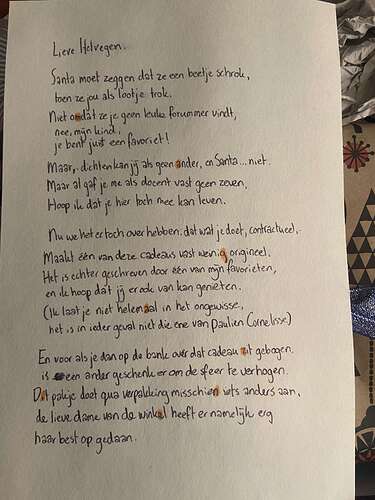 Lieve Helvegen.
Santa moet zeggen dat ze een beetje schrok,
toen ze jou als lootje trok.
Niet omdat ze je geen leuke forummer vindt,
nee, mijn kind,
je bent juist een favoriet!
Maar, dichten kan jij als geen ander, en Santa... niet.
Maar al gaf je me als docent vast geen zeven,
Hoop ik dat je hier toch mee kan leven.
Nu we het er toch over hebben: dat wat je doet, contractueel,
Maakt één van deze cadeaus vast weinig origineel.
Het is echter geschreven door één van mijn favorieten,
en ik hoop dat jij er ook van kan genieten.
(Ik laat je niet helemaal in het ongewisse,
het is in ieder geval niet die ene van Paulien Cornelisse)
En voor als je dan op de bank over dat cadeau zit gebogen.
is een ander geschenk er om de sfeer te verhogen.
Dit pakje doet qua verpakking misschien iets anders aan,
de lieve dame van de winkel heeft er namelijk erg
haar best op gedaan.